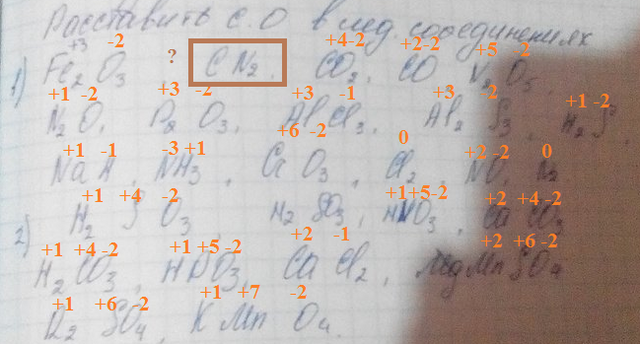 Расставить С.О в след. соединениях
+3 -2 ? +4 -2 +2 -2 +5 -2
1) Fe2 O3 , CN2, CO2, CO, N2 O5
+1 -2 +3 -2 +3 -1 +3 -2 +1 -2
N2 O, P2 O3, Al Cl3, Al2 S3, H2 S,
+1 -1 -3 +1 +6 -2 0 +2 -2 0
Na H, NH3, Cr O3, Cl2, NO,
+1 +4 -2 +1 +5 -2 +2 +4 -2
H2 S O3, H2 SO3, HNO3, Ca CO3
+1 +4 -2 +1 +5 -2 +2 -1 +2 +6 -2
2) H2 CO3, HNO3, Ca Cl2, SO4
+1 +6 -2 +1 +7 -2
SO4, K Mn O4.